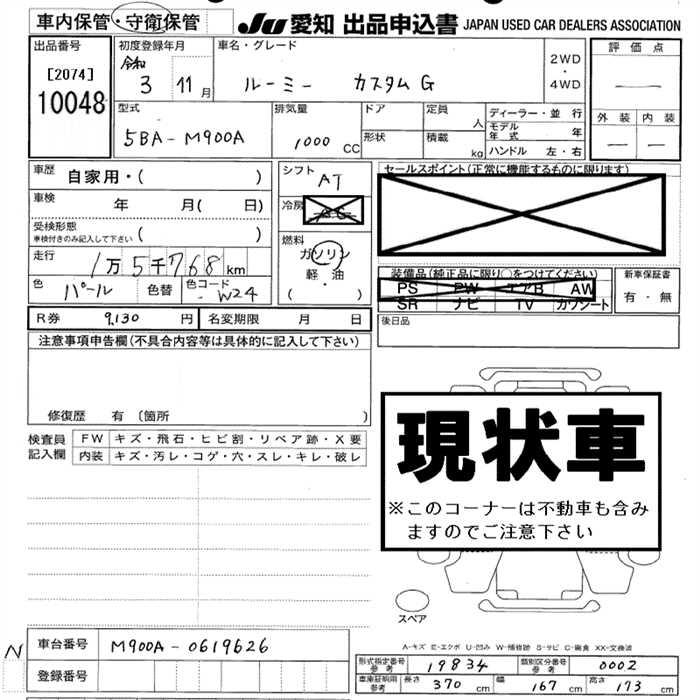 車内保管・守衛保管
JU 愛知 出品申込書 JAPAN USED CAR DEALERS ASSOCIATION
出品番号
[2074]
10048
初度登録年月
令和
3 11月
車名・グレード
ルーミー カスタムG
2WD
・
4WD
評価点
—
外装 内装
— —
型式
5BA-M900A
排気量
1000 CC
ドア
形状
定員
人
積載
kg
ディーラー・並行
モデル年式 年
ハンドル 左・右
車歴 自家用・( )
車検 年 月( 日)
受検形態
車検付きのみ記入して下さい ( )
走行 1万5千768km
色 パール 色替 色コード W24
シフト AT
冷房
燃料
ガソリン
軽・油
( ・ )
セールスポイント(正常に機能するものに限ります)
装備品(純正品に限り○をつけてください)
PS PW エアB AW
SR ナビ TV カワシート
新車保証書
有・無
後日品
R券 9,130 円 名変期限 月 日
注意事項申告欄(不具合内容等は具体的に記入して下さい)
修復歴 有 〔箇所 〕
検査員記入欄
FW キズ・飛石・ヒビ割・リペア跡・X要
内装 キズ・汚レ・コゲ・穴・スレ・キレ・破レ
現状車
※このコーナーは不動車も含み
ますのでご注意下さい
スペア
A-キズ E-エクボ U-凹み W-補修跡 S-サビ C-腐食 XX-交換済
N
車台番号 M900A-0619626
登録番号
形式指定番号 参考 19834 類別区分番号 参考 0002
車庫証明用 参考 長さ 370 cm 幅 167 cm 高さ 173 cm